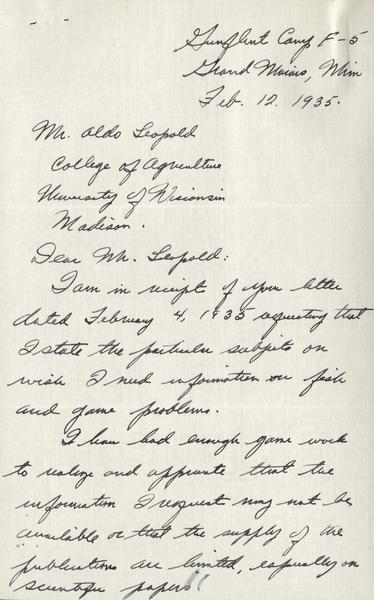 Gunflint Camp F-5
Grand Marais, Minn
Feb. 12. 1935.
Mr. Aldo Leopold
College of Agriculture
University of Wisconsin
Madison.
Dear Mr. Leopold:
I am in receipt of your letter
dated February 4, 1935 requesting that
I state the particular subjects on
wish I need information on fish
and game problems.
I have had enough game work
to realize and appreciate that the
information I request may not be
available or that the supply of the
publications are limited, especially on
scientific papers